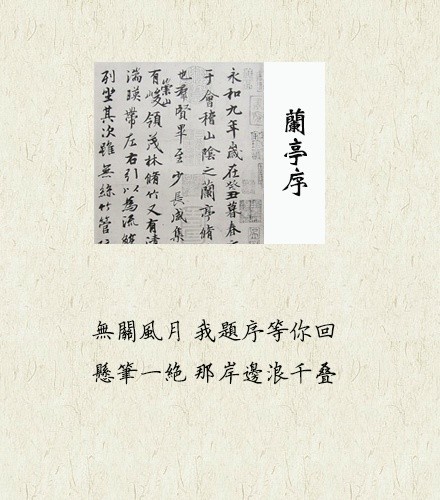 蘭亭序
永和九年歲在癸丑暮春
于會稽山陰之蘭亭脩
也羣賢畢至少長咸集
有崇山峻領茂林脩竹又有清
湍暎帶左右引以為流
列坐其次雖無絲竹管
無關風月 我題序等你回
懸筆一絶 那岸邊浪千叠